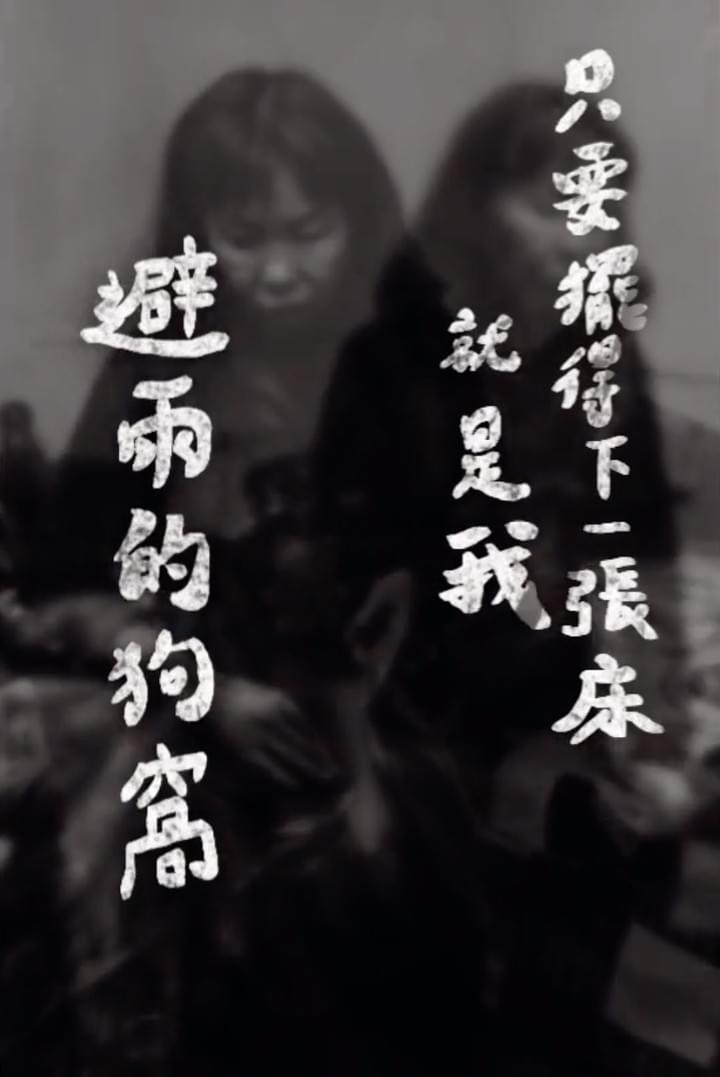 只要擺得下一張床
就是我
避雨的狗窩